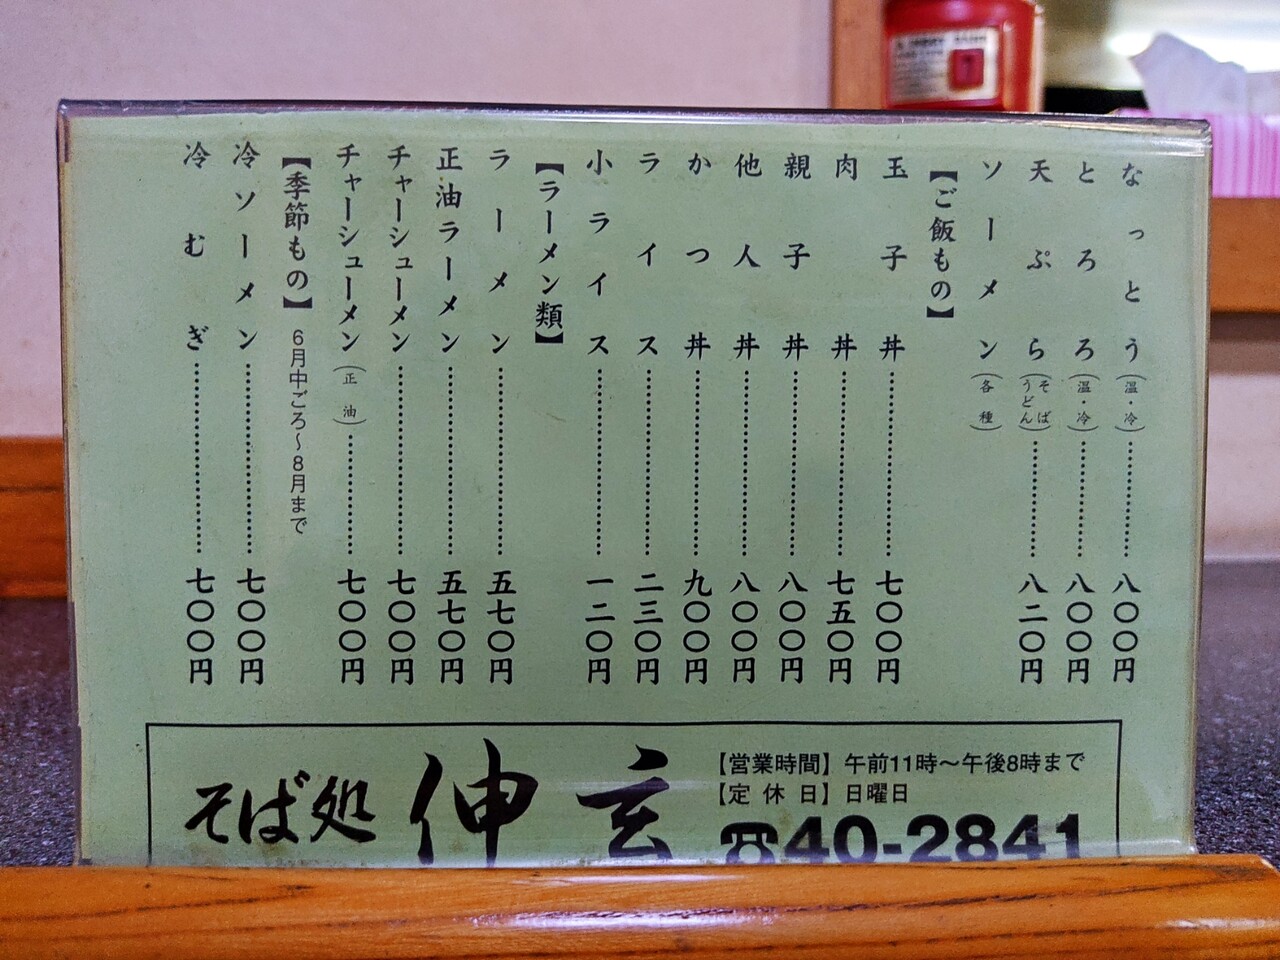 なっとう（温・冷）……八〇〇円
とろろ（温・冷）……八〇〇円
天ぷら（そば うどん）……八二〇円
ソーメン（各種）
【ご飯もの】
玉子丼……七〇〇円
肉丼……七五〇円
親子丼……八〇〇円
他人丼……八〇〇円
かつ丼……九〇〇円
ライス……二三〇円
小ライス……一二〇円
【ラーメン類】
ラーメン……五七〇円
正油ラーメン……五七〇円
チャーシューメン……七〇〇円
チャーシューメン（正油）……七〇〇円
【季節もの】6月中ごろ〜8月まで
冷ソーメン……七〇〇円
冷むぎ……七〇〇円
そば処 伸玄
【営業時間】午前11時〜午後8時まで
【定休日】日曜日
☎40-2841